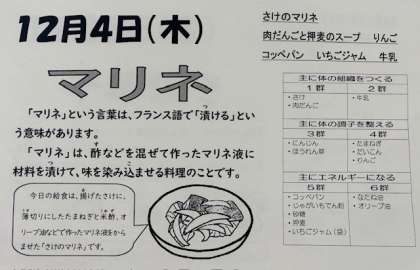 12月4日(木)
マリネ
「マリネ」という言葉は、フランス語で「漬ける」とい
う意味があります。
「マリネ」は、酢などを混ぜて作ったマリネ液に
材料を漬けて、味を染み込ませる料理のことです。
今日の給食は、揚げたさけに、
薄切りにしたたまねぎと米酢、オ
リーブ油などで作ったマリネ液をから
ませた「さけのマリネ」です。
さけのマリネ
肉だんごと押麦のスープ りんご
コッペパン いちごジャム 牛乳
主に体の組織をつくる
1群 2群
・さけ ・牛乳
・肉だんご
主に体の調子を整える
3群 4群
・にんじん ・たまねぎ
・ほうれん草 ・だいこん
・りんご
主にエネルギーになる
5群 6群
・コッペパン ・なたね油
・じゃがいもでん粉 ・オリーブ油
・砂糖
・押麦
・いちごジャム(袋)